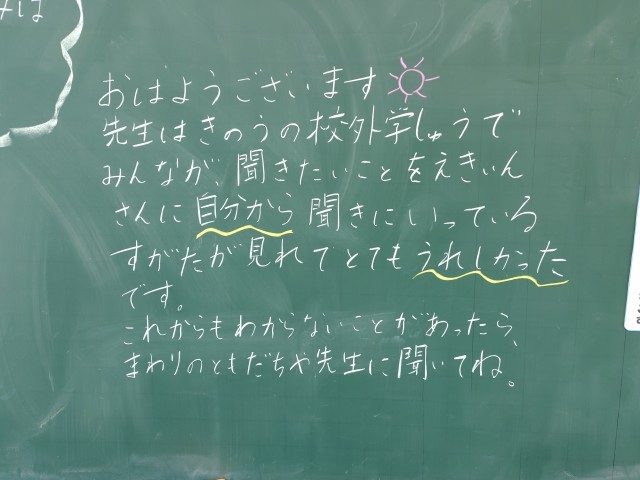 みは
おはようございます
先生はきのうの校外学しゅうで
みんなが、聞きたいことをえきいん
さんに自分から聞きにいっている
すがたが見れてとてもうれしかった
です。
これからもわからないことがあったら、
まわりのともだちや先生に聞いてね。